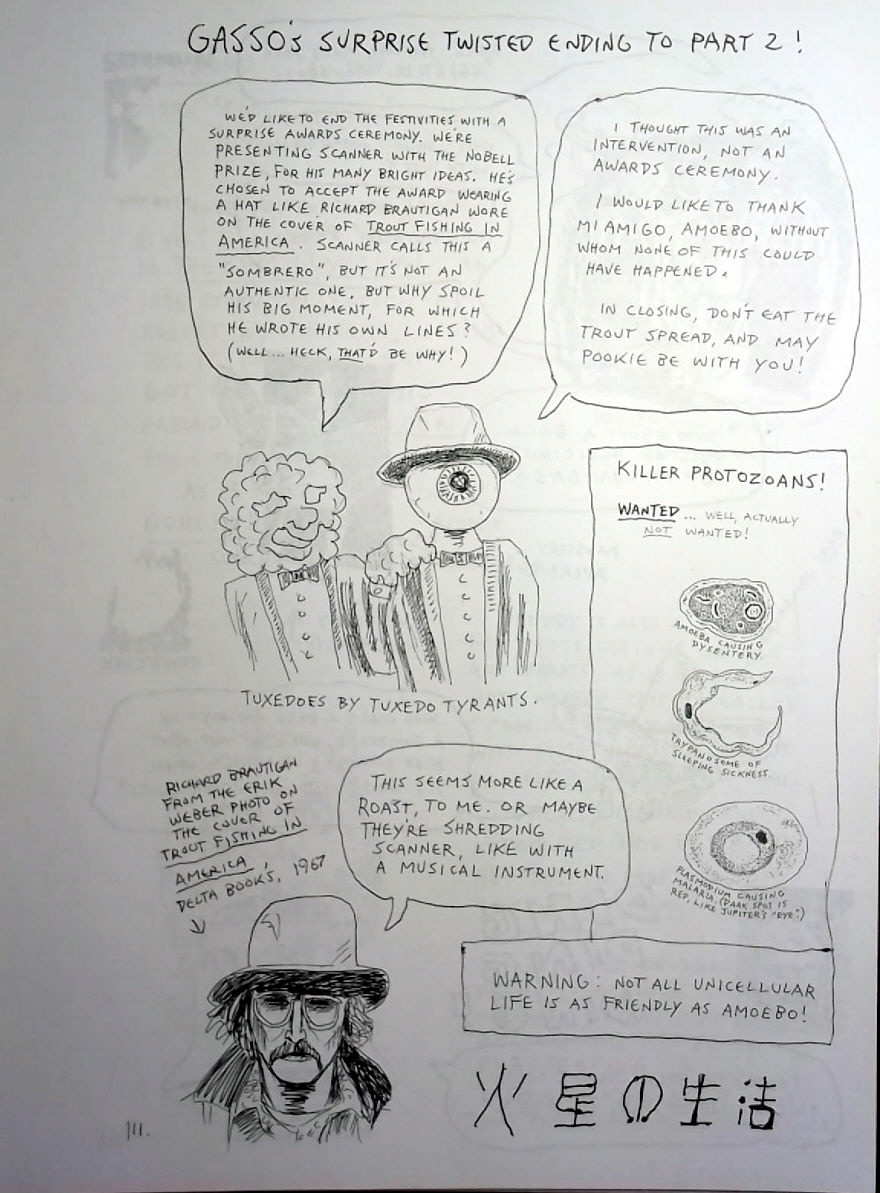 GASSO'S SURPRISE TWISTED ENDING TO PART 2!
WE'D LIKE TO END THE FESTIVITIES WITH A
SURPRISE AWARDS CEREMONY. WE'RE
PRESENTING SCANNER WITH THE NOBELL
PRIZE, FOR HIS MANY BRIGHT IDEAS. HE'S
CHOSEN TO ACCEPT THE AWARD WEARING
A HAT LIKE RICHARD BRAUTIGAN WORE
ON THE COVER OF TROUT FISHING IN
AMERICA. SCANNER CALLS THIS A
"SOMBRERO", BUT IT'S NOT AN
AUTHENTIC ONE. BUT WHY SPOIL
HIS BIG MOMENT, FOR WHICH
HE WROTE HIS OWN LINES?
(WELL... HECK, THAT'D BE WHY!)
I THOUGHT THIS WAS AN
INTERVENTION, NOT AN
AWARDS CEREMONY.
I WOULD LIKE TO THANK
MI AMIGO, AMOEBO, WITHOUT
WHOM NONE OF THIS COULD
HAVE HAPPENED.
IN CLOSING, DON'T EAT THE
TROUT SPREAD, AND MAY
POOKIE BE WITH YOU!
TUXEDOES BY TUXEDO TYRANTS.
KILLER PROTOZOANS!
WANTED... WELL, ACTUALLY
NOT WANTED!
AMOEBA CAUSING
DYSENTERY.
TRYPANOSOME OF
SLEEPING SICKNESS.
PLASMODIUM CAUSING
MALARIA. (DARK SPOT IS
RED, LIKE JUPITER'S "EYE".)
RICHARD BRAUTIGAN
FROM THE ERIK
WEBER PHOTO ON
THE COVER OF
TROUT FISHING IN
AMERICA,
DELTA BOOKS, 1967
THIS SEEMS MORE LIKE A
ROAST, TO ME. OR MAYBE
THEY'RE SHREDDING
SCANNER, LIKE WITH
A MUSICAL INSTRUMENT.
WARNING: NOT ALL UNICELLULAR
LIFE IS AS FRIENDLY AS AMOEBO!
火星の生活
111.